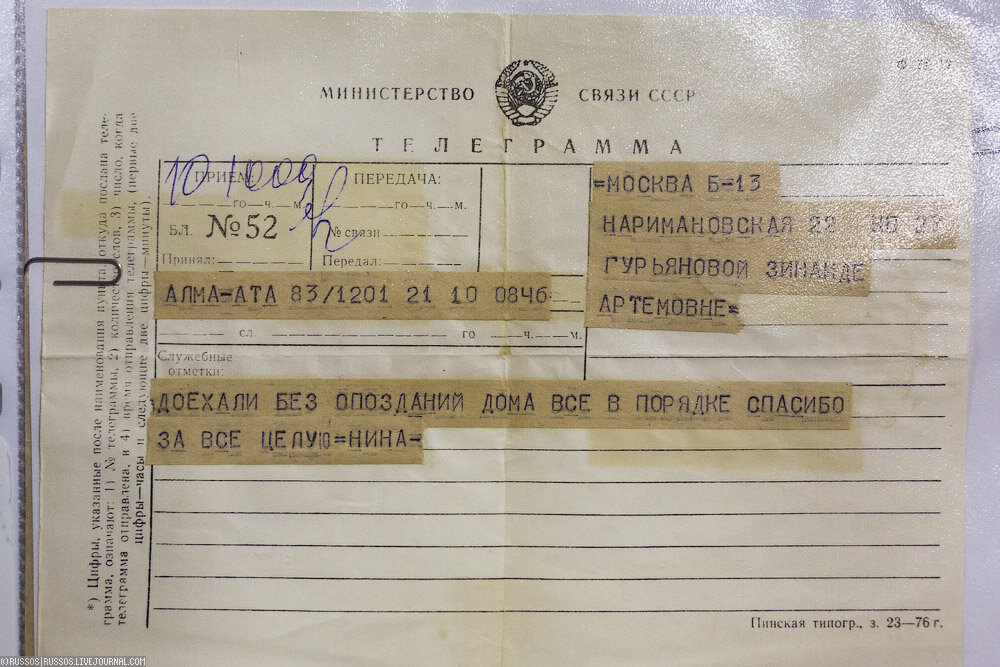 МИНИСТЕРСТВО СВЯЗИ СССР
ТЕЛЕГРАММА
ПРИЕМ:
10 1009
го ч. м.
БЛ. №52
Принял:
ПЕРЕДАЧА:
го ч. м.
№ связи
Передал:
=МОСКВА Б-13
НАРИМАНОВСКАЯ 22 КВ 27
ГУРЬЯНОВОЙ ЗИНАИДЕ
АРТЕМОВНЕ=
АЛМА=АТА 83/1201 21 10 0846
сл. го ч. м.
Служебные
отметки:
ДОЕХАЛИ БЕЗ ОПОЗДАНИЙ ДОМА ВСЕ В ПОРЯДКЕ СПАСИБО
ЗА ВСЕ ЦЕЛУЮ=НИНА-
*) Цифры, указанные после наименования пункта, откуда послана теле-
грамма, означают: 1) № телеграммы, 2) количество слов, 3) число, когда
телеграмма отправлена, и 4) время отправления телеграммы, (первые две
цифры—часы и следующие две цифры—минуты).
Пинская типогр., з. 23—76 г.
©RUSSOS|RUSSOS.LIVEJOURNAL.COM